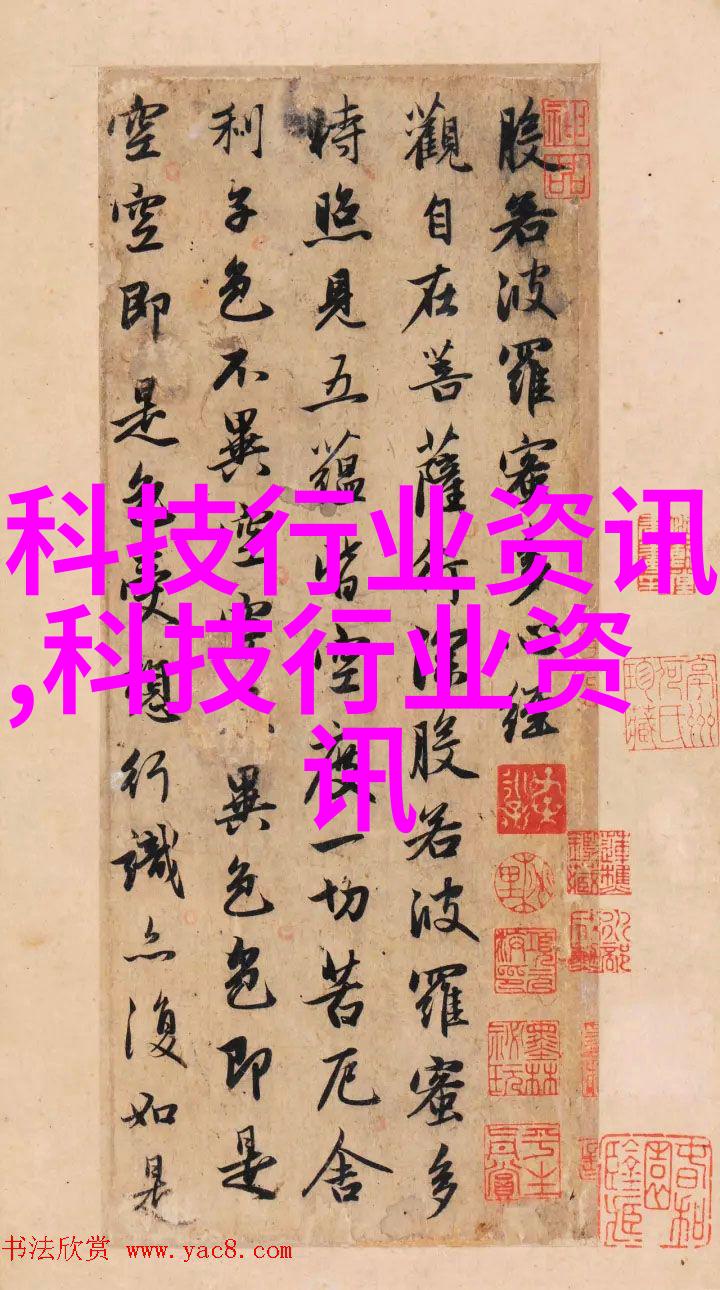 般若波羅蜜多心經
觀自在菩薩行深般若波羅蜜多
時照見五蘊皆空度一切苦厄舍
利子色不異空空不異色色即是
空空即是色受想行識亦復如是
科技行业资讯
,科技行业资
讯
神品
墨林祕玩
平生真賞
书法欣赏 www.yac8.com